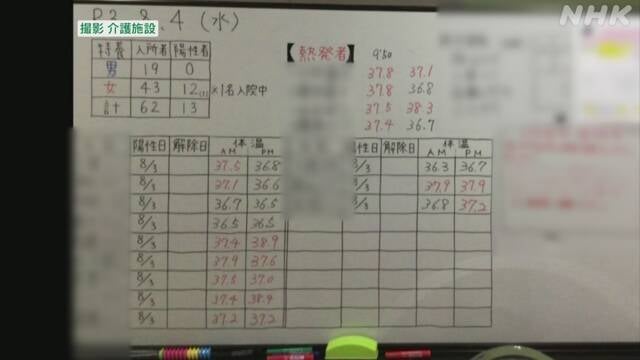 撮影 介護施設
NHK
R3. 8. 4 (水)
特養 入所者 陽性者
男 19 0
女 43 12(1) ※1名入院中
計 62 13
【熱発者】 9:50
37.8 37.1
37.8 36.8
37.5 38.3
37.4 36.7
陽性日 解除日 体温 AM PM
8/3 37.5 36.8
8/3 37.1 36.6
8/3 36.7 36.5
8/3 36.5 36.5
8/3 37.4 38.9
8/3 37.9 37.6
8/3 37.5 37.0
8/3 37.4 38.9
8/3 37.2 37.2
陽性日 解除日 体温 AM PM
8/3 36.3 36.7
8/3 37.9 37.9
8/3 36.8 37.2